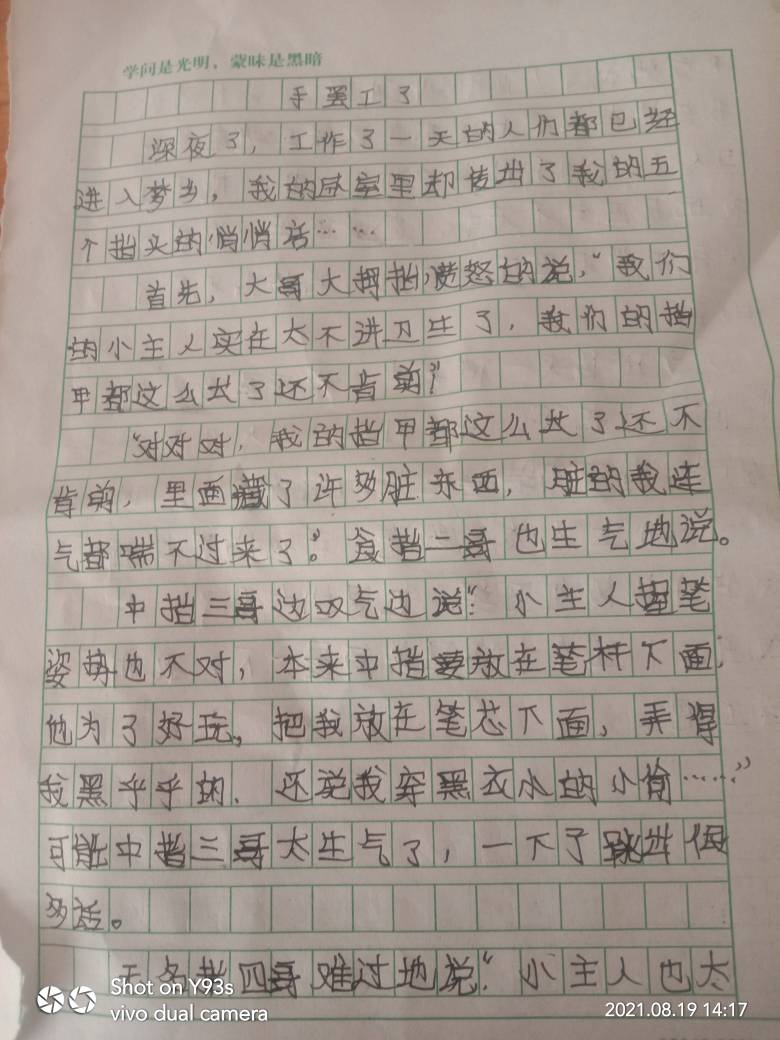 学问是光明，蒙昧是黑暗
手罢工了
深夜了，工作了一天的人们都已经
进入梦乡，我的卧室里却传出了我的五
个指头的悄悄话……
首先，大哥大拇指愤怒的说，“我们
的小主人实在太不讲卫生了，我们的指
甲都这么长了还不肯剪！”
“对对对，我的指甲都这么长了还不
肯剪，里面藏了许多脏东西，脏的我连
气都喘不过来了。”食指二哥也生气地说。
中指三哥边叹气边说：“小主人握笔
姿势也不对，本来中指要放在笔杆下面，
他为了好玩，把我放在笔芯下面，弄得
我黑乎乎的．还说我穿黑衣小的小偷……”
可能中指三哥太生气了，一下子跳出很
多话。
无名指四哥难过地说：“小主人也太
Shot on Y93s
vivo dual camera
2021.08.19 14:17